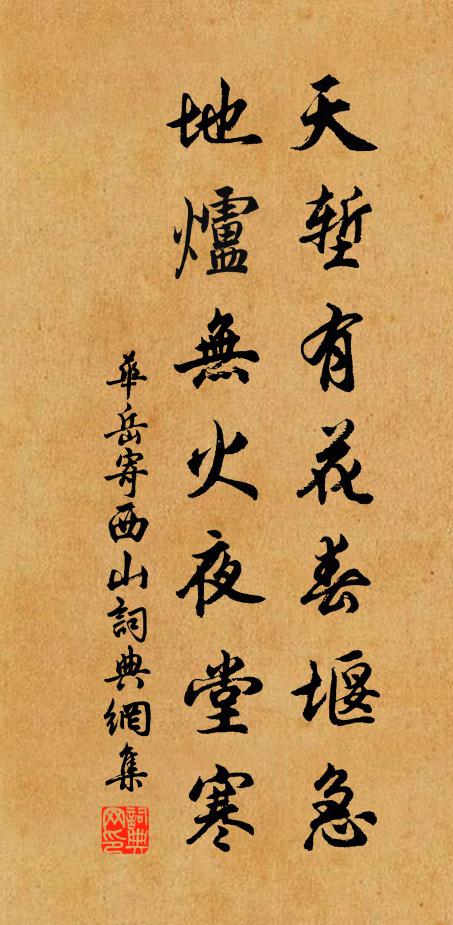 天塹有花春堰急
地爐無火夜堂寒
華岳寄西山詞典網集
詞典网印